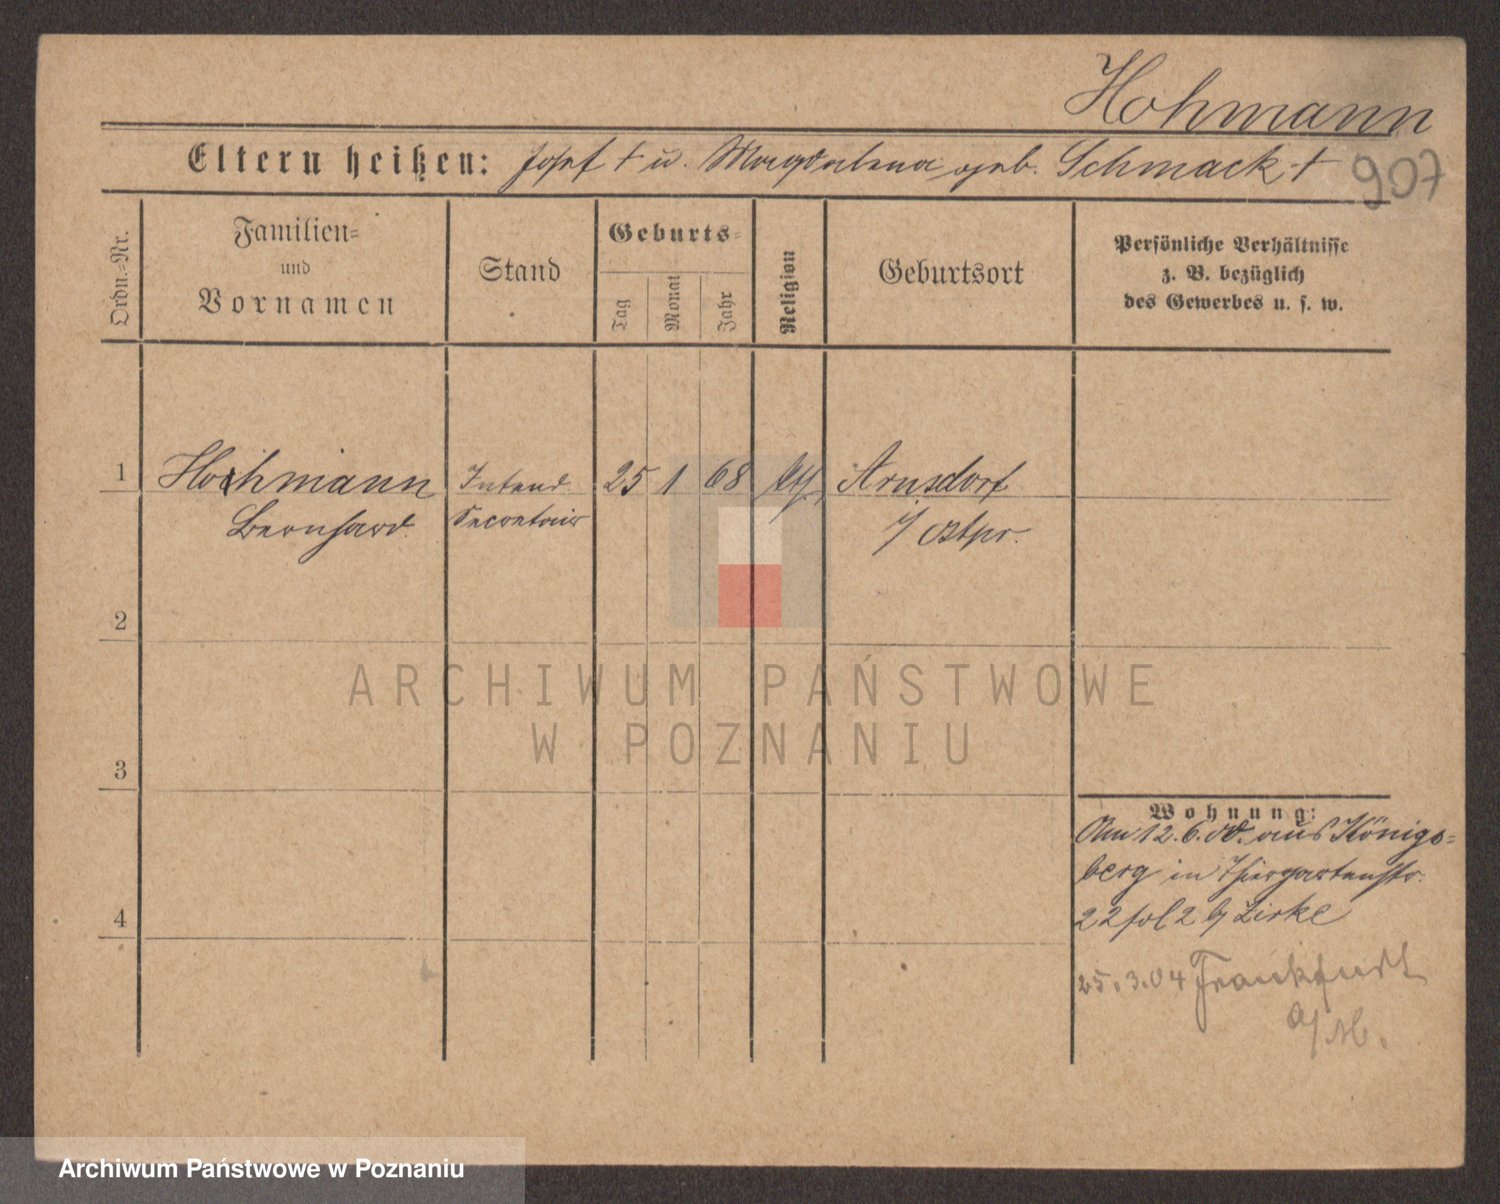 Hohmann
Eltern heißen: Josef † u. Magdalena geb. Schmack †
907
Ordn.-Nr.
Familien-
und
Vornamen
Stand
Geburts-
Tag
Monat
Jahr
Religion
Geburtsort
Persönliche Verhältnisse
z. B. bezüglich
des Gewerbes u. s. w.
1 Hohmann Intend. 25 1 68 kth. Arnsdorf
Bernhard. Secretair i/ Ostpr.
2
3
4
Wohnung:
Am 12.6.00. aus Königs-
berg in Thiergartenstr.
22 fol 2 b/ Zirke
25.3.04 Frankfurt
a/M.
ARCHIWUM PAŃSTWOWE
W POZNANIU
Archiwum Państwowe w Poznaniu